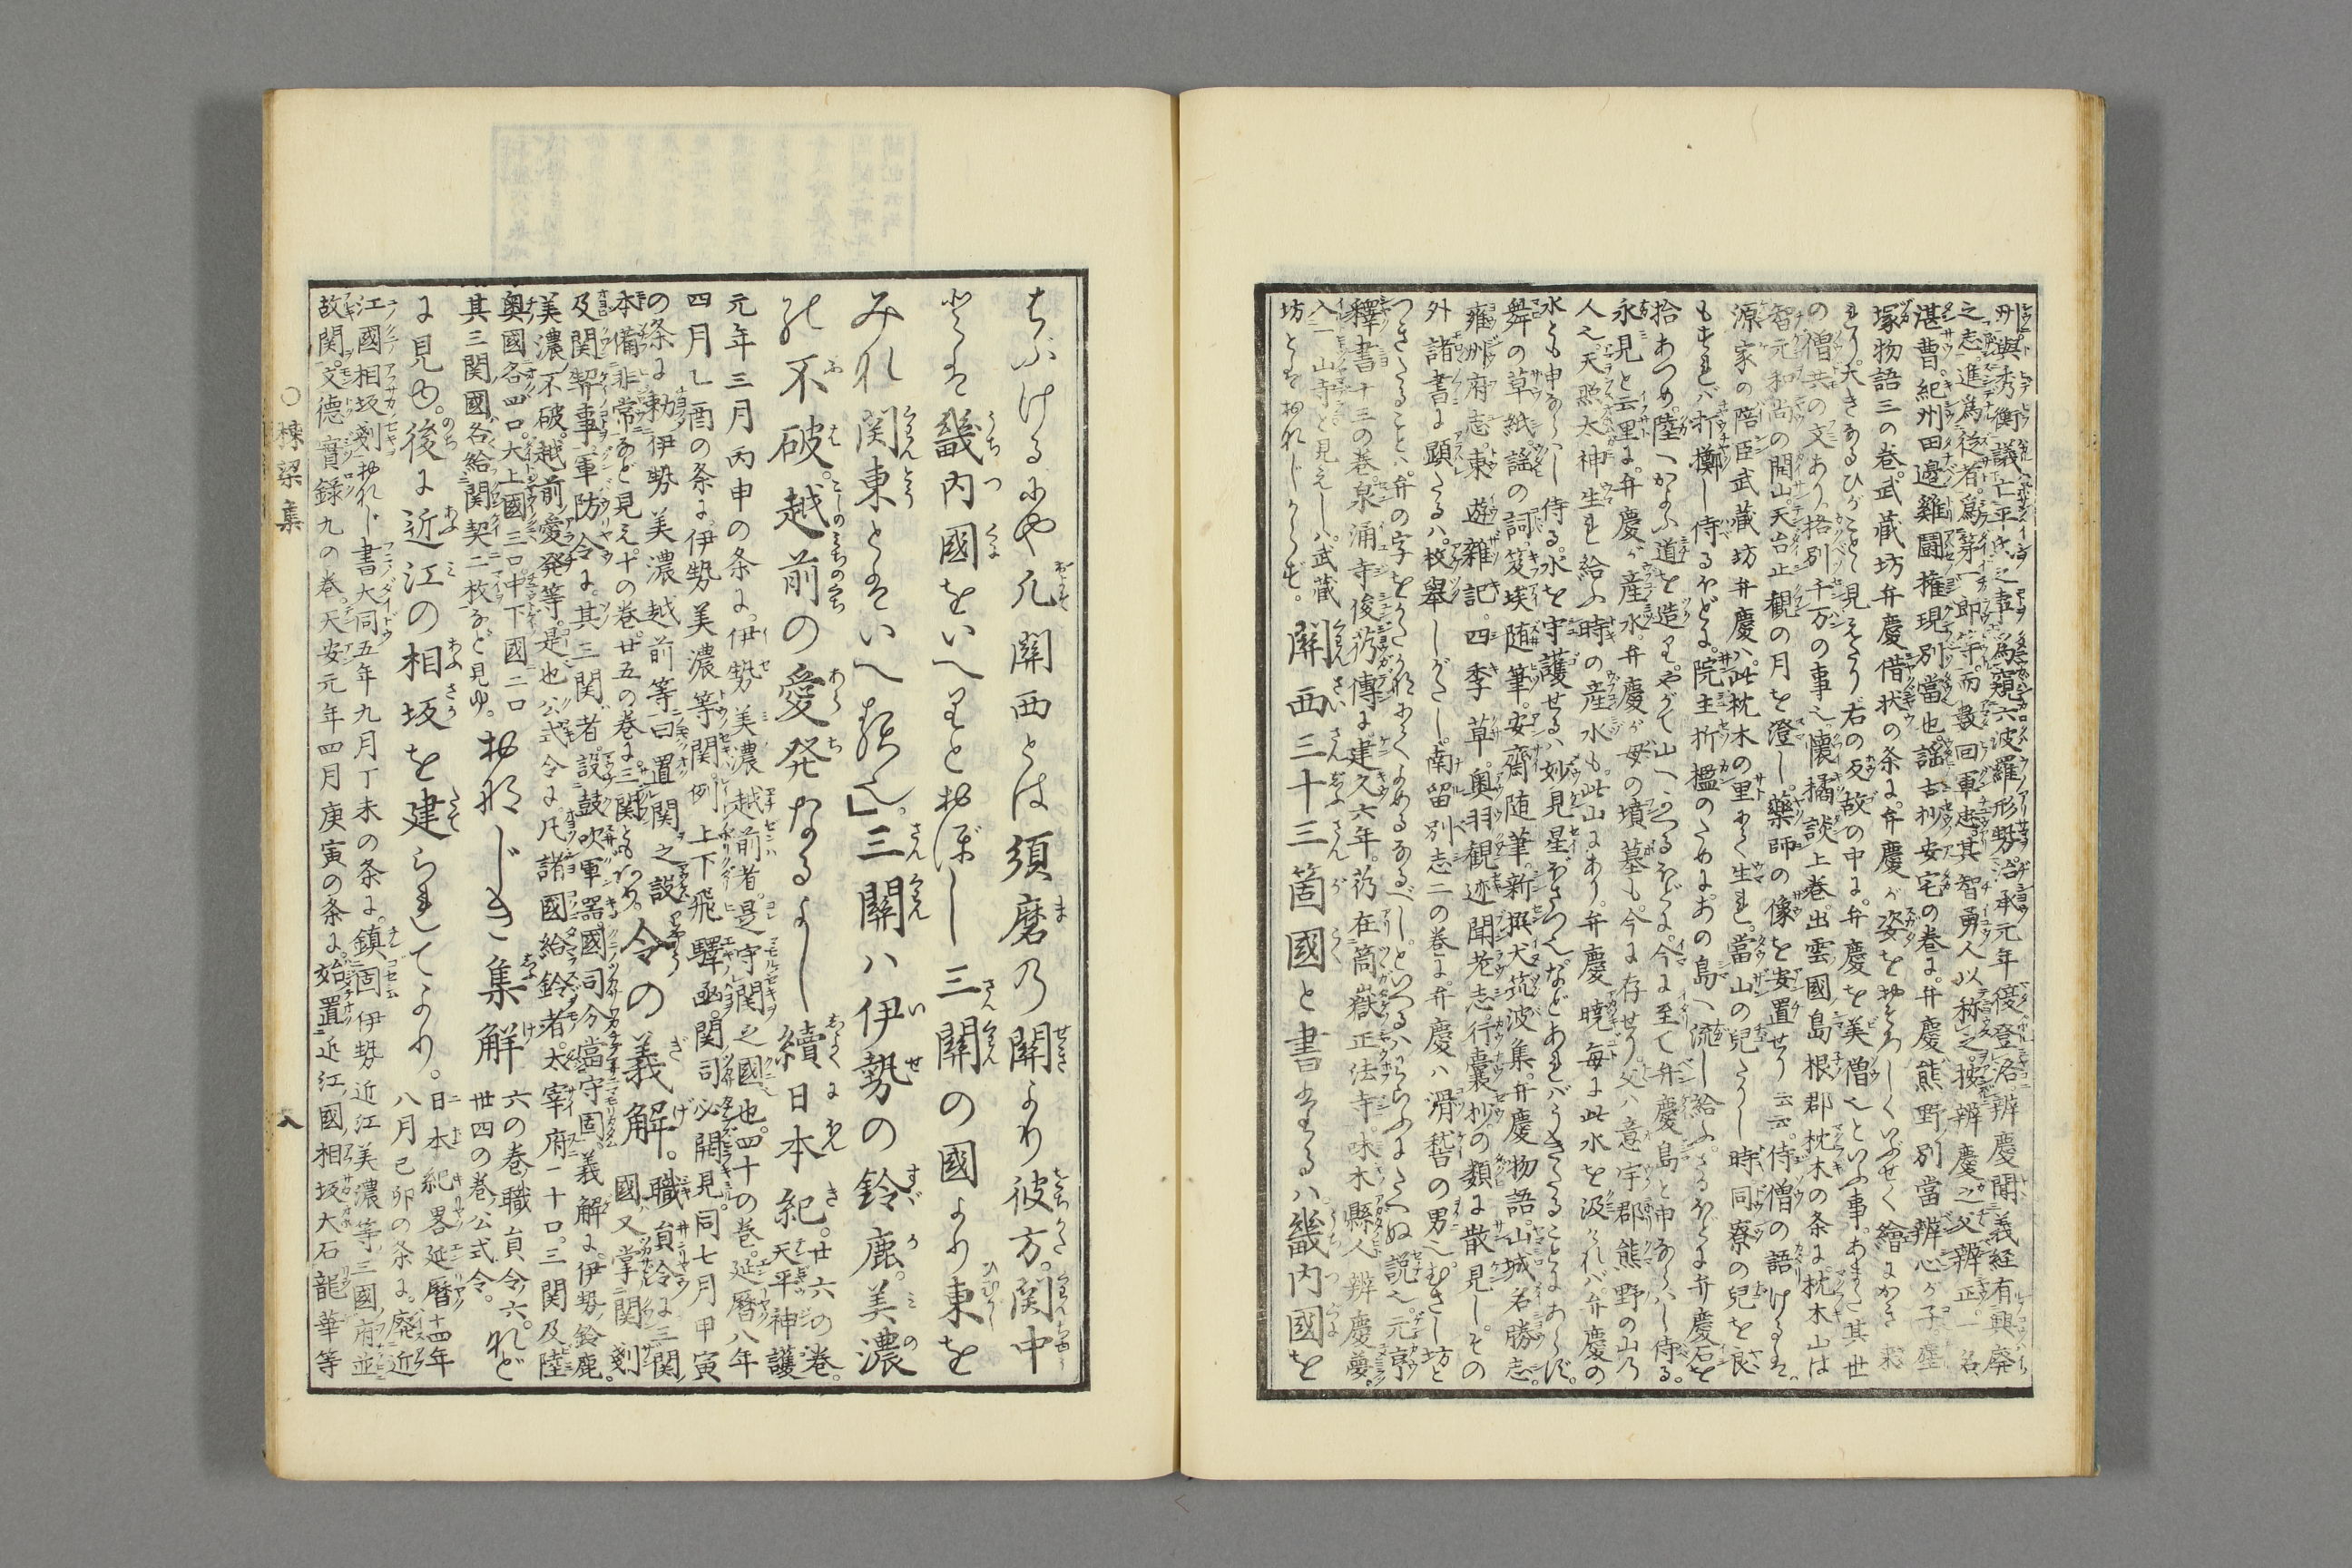 丹與秀衡議亡平氏之事為窺六波羅形勢治承元年優登洛辨慶聞義経有興廃
之志進為従者為第一郎等而数回軍忠其智勇人以称之按辨慶之父辨正一名
湛曹紀州田邊雞闘権現別當也謡古抄安宅の巻に弁慶熊野別當辨心が子塵
塚物語三の巻武蔵坊弁慶借状の条に弁慶が姿をおそろしくいぶせく繪にかき
れり大きなるひがこと見えたり右の反故の中に弁慶を美僧也といふ事あまた其世
の僧共の文あり格別千万の事也懐橘談上巻出雲國島根郡枕木の条に枕木山は
智元和尚の開山天台止観の月を澄し薬師の像を安置せり云云侍僧の語けるは
源家の陪臣武蔵坊弁慶ハ此枕木の里にて生れ當山の兒たりし時同寮の兒を
もすれバ打擲し侍るほどに院主折檻のためにあの島へ流し給ふさるほどに弁慶石を
拾あつめ陸へかよふ道を造りやがて山へかへるほどに今に至て弁慶島と申ならハし侍る
永見と云里に弁慶が産水弁慶が母の墳墓も今に存せり父ハ意宇郡熊野の山乃
人也天照太神生れ給ふ時の産水も此山にあり弁慶暁毎に此水を汲けれバ弁慶の
水とも申ならハし侍る水を守護せるハ妙見星ぼさつ也などあれバうきたることにあらず
舞の草紙謡の詞笈埃随筆安齋随筆新撰犬筑波集弁慶物語山城名勝志
雍州府志東遊雑記四季草奥羽観迹聞老志行嚢抄の類に散見しその
外諸書に顕たるハ枚舉しがたし南留別志二の巻に弁慶ハ滑稽の男也むさし坊と
つきたることハ弁の字をかたかなにてよめるなるべしといへるハうらふにたへぬ説也元亨
釋書十三の巻泉涌寺俊芿傳に建久六年芿在筒嶽正法寺味木縣人辨慶夢
入二山寺と見えしハ武蔵
坊とはおなじからず 關西三十三箇國と書たるハ畿内國を
もらぶけるにや凡關西とは須磨乃關より彼方関中
とハ畿内國をいへりとおぼし三關の國より東を
みな関東とはいへる也」三關ハ伊勢の鈴鹿美濃
の不破越前の愛発なるよし續日本紀廿六の巻天平神護
元年三月丙申の条に伊勢美濃越前者是守關之國也四十の巻延暦八年
四月乙酉の条に伊勢美濃等関例上下飛驛函関司必開見同七月甲寅
の条に勅伊勢美濃越前等曰置関之設 令の義解職員令に三関
本備非常など見え十の巻廿五の巻に三関とあり 國又掌関剗
及関契事軍防令に其三関者設鼓吹軍器國司分當守固義解に伊勢鈴鹿
美濃不破越前愛発等是也公式令に凡諸國給鈴者太宰府二十口三関及陸
奥國各四口大上國三口中下國二口
其三関國各給関契二枚など見ゆ おなじき集解六の巻職員令六
丗四の巻公式令など
に見ゆ後に近江の相坂を建られてより日本紀畧延暦十四年
八月己卯の条に廃近
江國相坂剗おなじ書大同五年九月丁未の条に鎮固伊勢近江美濃等三國府並
故関文徳實録九の巻天安元年四月庚寅の条に始置近江國相坂大石龍華等
○棟梁集 八